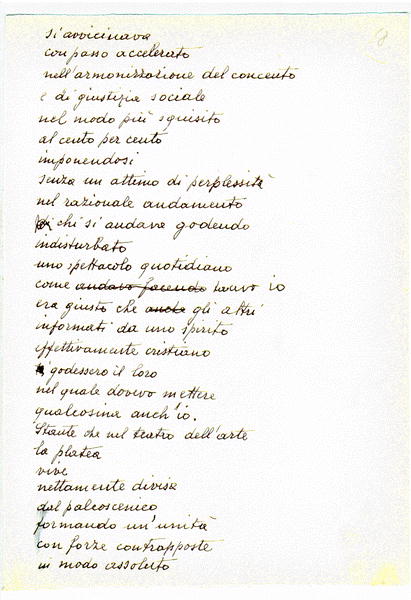 8
si avvicinava
con passo accelerato
nell'armonizzazione del concento
e di giustizia sociale
nel modo più squisito
al cento per cento
imponendosi
senza un attimo di perplessità
nel razionale andamento
di chi si andava godendo
indisturbato
uno spettacolo quotidiano
come andavo facendo io
era giusto che anche gli altri
informati da uno spirito
effettivamente cristiano
si godessero il loro
nel quale dovevo mettere
qualcosina anch'io.
Stante che nel teatro dell'arte
la platea
vive
nettamente divisa
dal palcoscenico
formando un'unità
con forze contrapposte
in modo assoluto